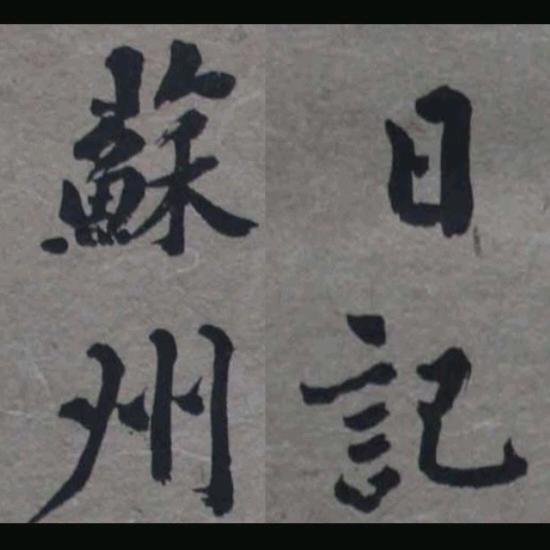 日記
蘇州